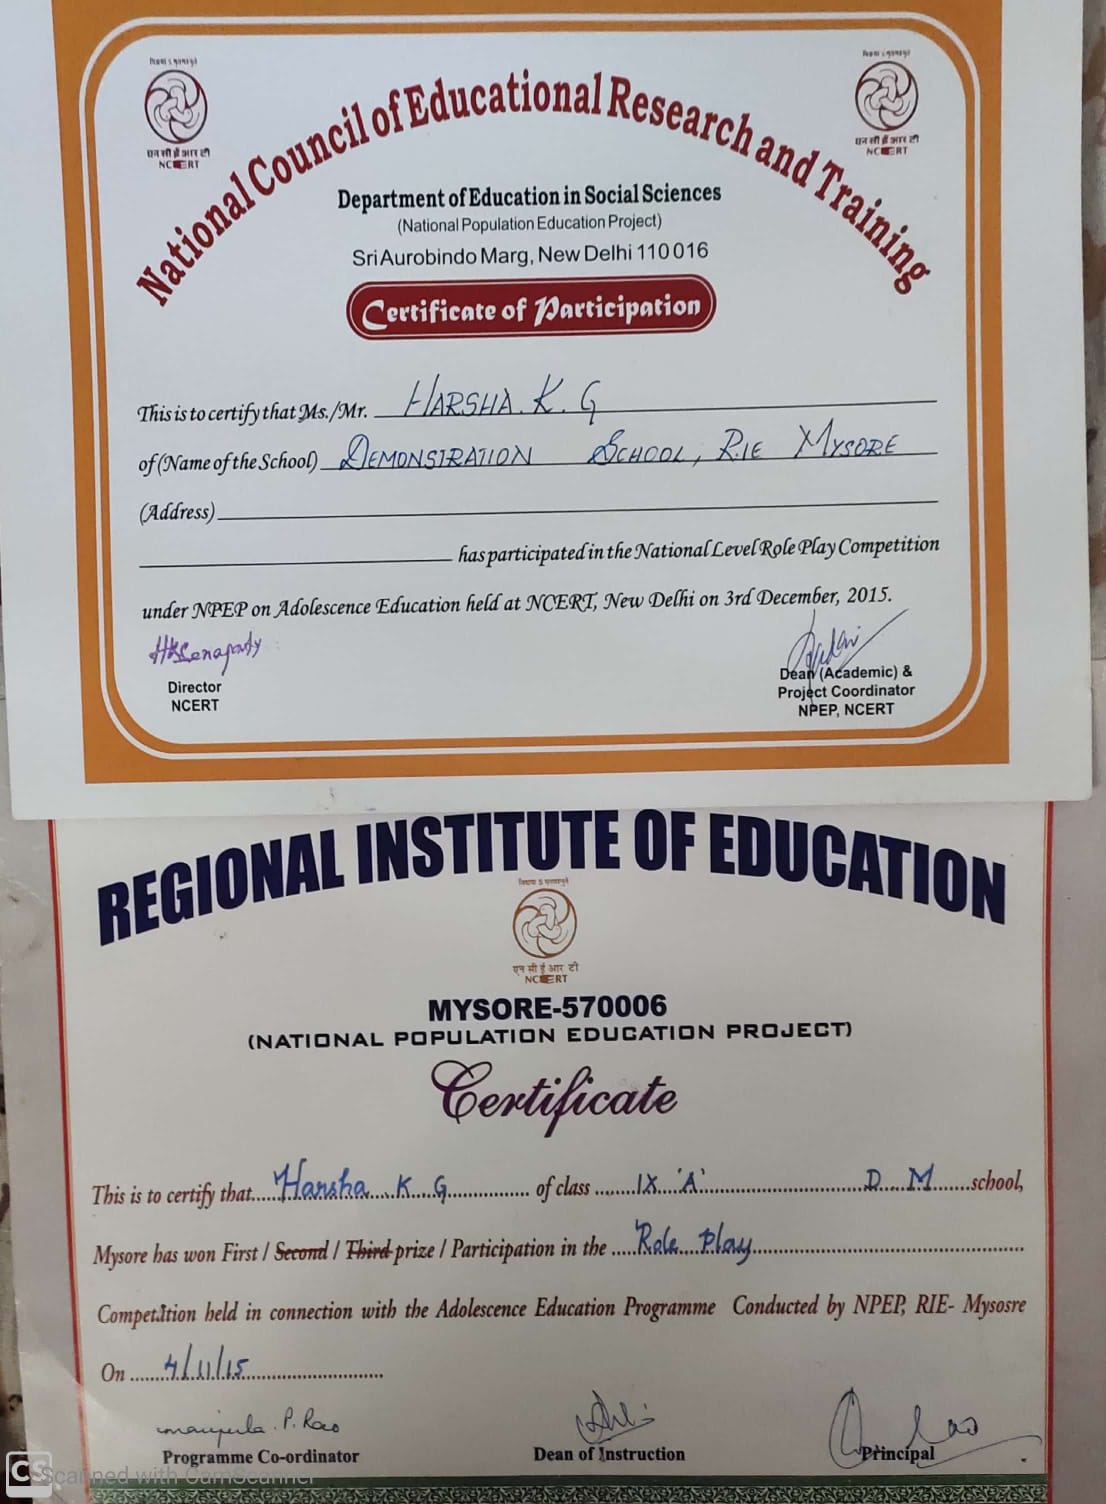 विद्यया ऽ मृतमश्नुते
एन सी ई आर टी
NCERT
विद्यया ऽ मृतमश्नुते
एन सी ई आर टी
NCERT
National Council of Educational Research and Training
Department of Education in Social Sciences
(National Population Education Project)
Sri Aurobindo Marg, New Delhi 110 016
Certificate of Participation
This is to certify that Ms./Mr. HARSHA. K. G
of (Name of the School) DEMONSTRATION SCHOOL, RIE MYSORE
(Address)
has participated in the National Level Role Play Competition
under NPEP on Adolescence Education held at NCERT, New Delhi on 3rd December, 2015.
HKSenapaty
Director
NCERT
Dean (Academic) &
Project Coordinator
NPEP, NCERT
REGIONAL INSTITUTE OF EDUCATION
विद्यया ऽ मृतमश्नुते
एन सी ई आर टी
NCERT
MYSORE-570006
(NATIONAL POPULATION EDUCATION PROJECT)
Certificate
This is to certify that Harsha K G of class IX 'A' D M school,
Mysore has won First / Second / Third prize / Participation in the Role Play
Competition held in connection with the Adolescence Education Programme Conducted by NPEP, RIE- Mysosre
On 4/11/15
manjula. P. Rao
Programme Co-ordinator
Dean of Instruction
Principal
CS Scanned with CamScanner